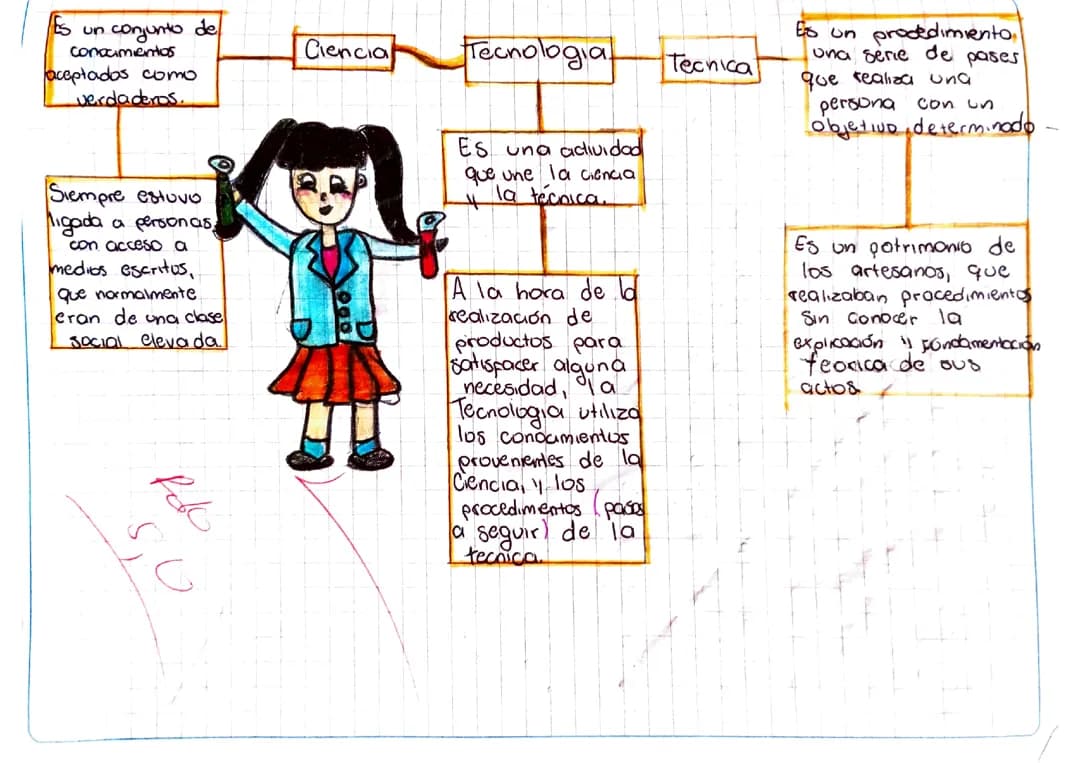 Es un conjunto de
conocimientos
aceptados como
verdaderos.
Ciencia
Tecnologia
Tecnica
Es un procedimiento,
una serie de pases
que realiza una
persona con un
objetivo determinado
Siempre estuvo
ligada a personas
con acceso a
medios escritos,
que normalmente
eran de una clase
social elevada.
Es una actividad
que une la ciencia
y la técnica.
A la hora de la
realización de
productos para
satisfacer alguna
necesidad, la
Tecnologia utiliza
los conocimientos
provenientes de la
Ciencia, y los
procedimentos (pasos
a seguir) de la
tecnica.
Es un patrimonio de
los artesanos, que
realizaban procedimientos
sin conocer la
explicación y fundamentación
teorica de sus
actos